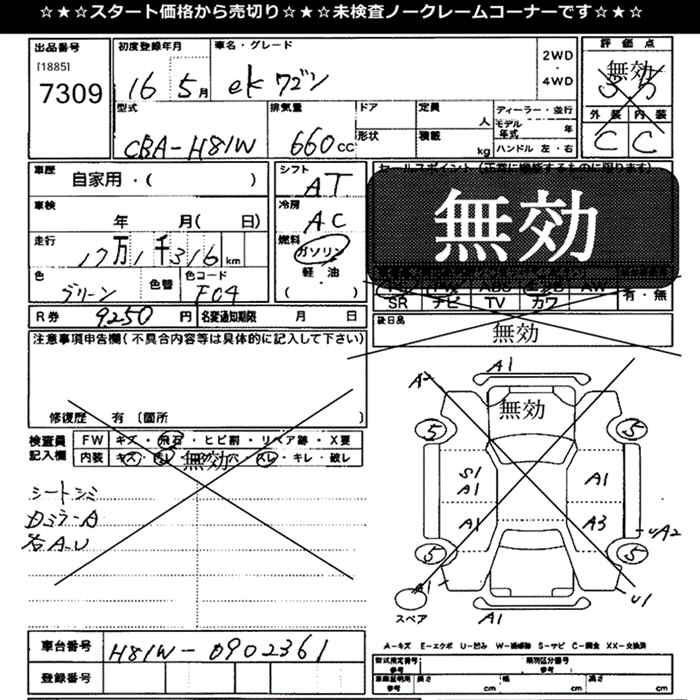 ☆★☆★スタート価格から売切り☆★☆★未検査ノークレームコーナーです☆★☆
出品番号 初度登録年月 車名・グレード 2WD・4WD 評価点
[1885]
7309 16 5月 ekワゴン 無効
型式 排気量 ドア 定員 人 ディーラー・並行 外装 内装
モデル年式 年
CBA-H81W 660cc 形状 積載 kg ハンドル 左・右 C C
車歴 自家用・( ) シフト AT セールスポイント(正常に機能するものに限ります)
車検 年 月( 日) 冷房 AC 無効
走行 17万1千316km 燃料 ガソリン
色 色替 色コード 軽・油
グリーン F04 ( ) 有・無
SR ナビ TV カワ
R券 9250円 名変通知期限 月 日 後日品
無効
注意事項申告欄(不具合内容等は具体的に記入して下さい)
A1
A2
無効
修復歴 有 〔箇所 〕
検査員記入欄 FW キズ・飛石・ヒビ割・リペア跡・X要 5 5
内装 無効 スレ・キレ・破レ
S1
A1 A1
シートシミ
A1 A3
各A.U A2
5 5
A1 U1
スペア
A1
車台番号 H81W-0902361
A-キズ E-エクボ U-凹み S-サビ C-腐食 XX-交換済
登録番号 型式指定番号 参考 類別区分番号 参考
長さ cm 幅 cm 高さ cm